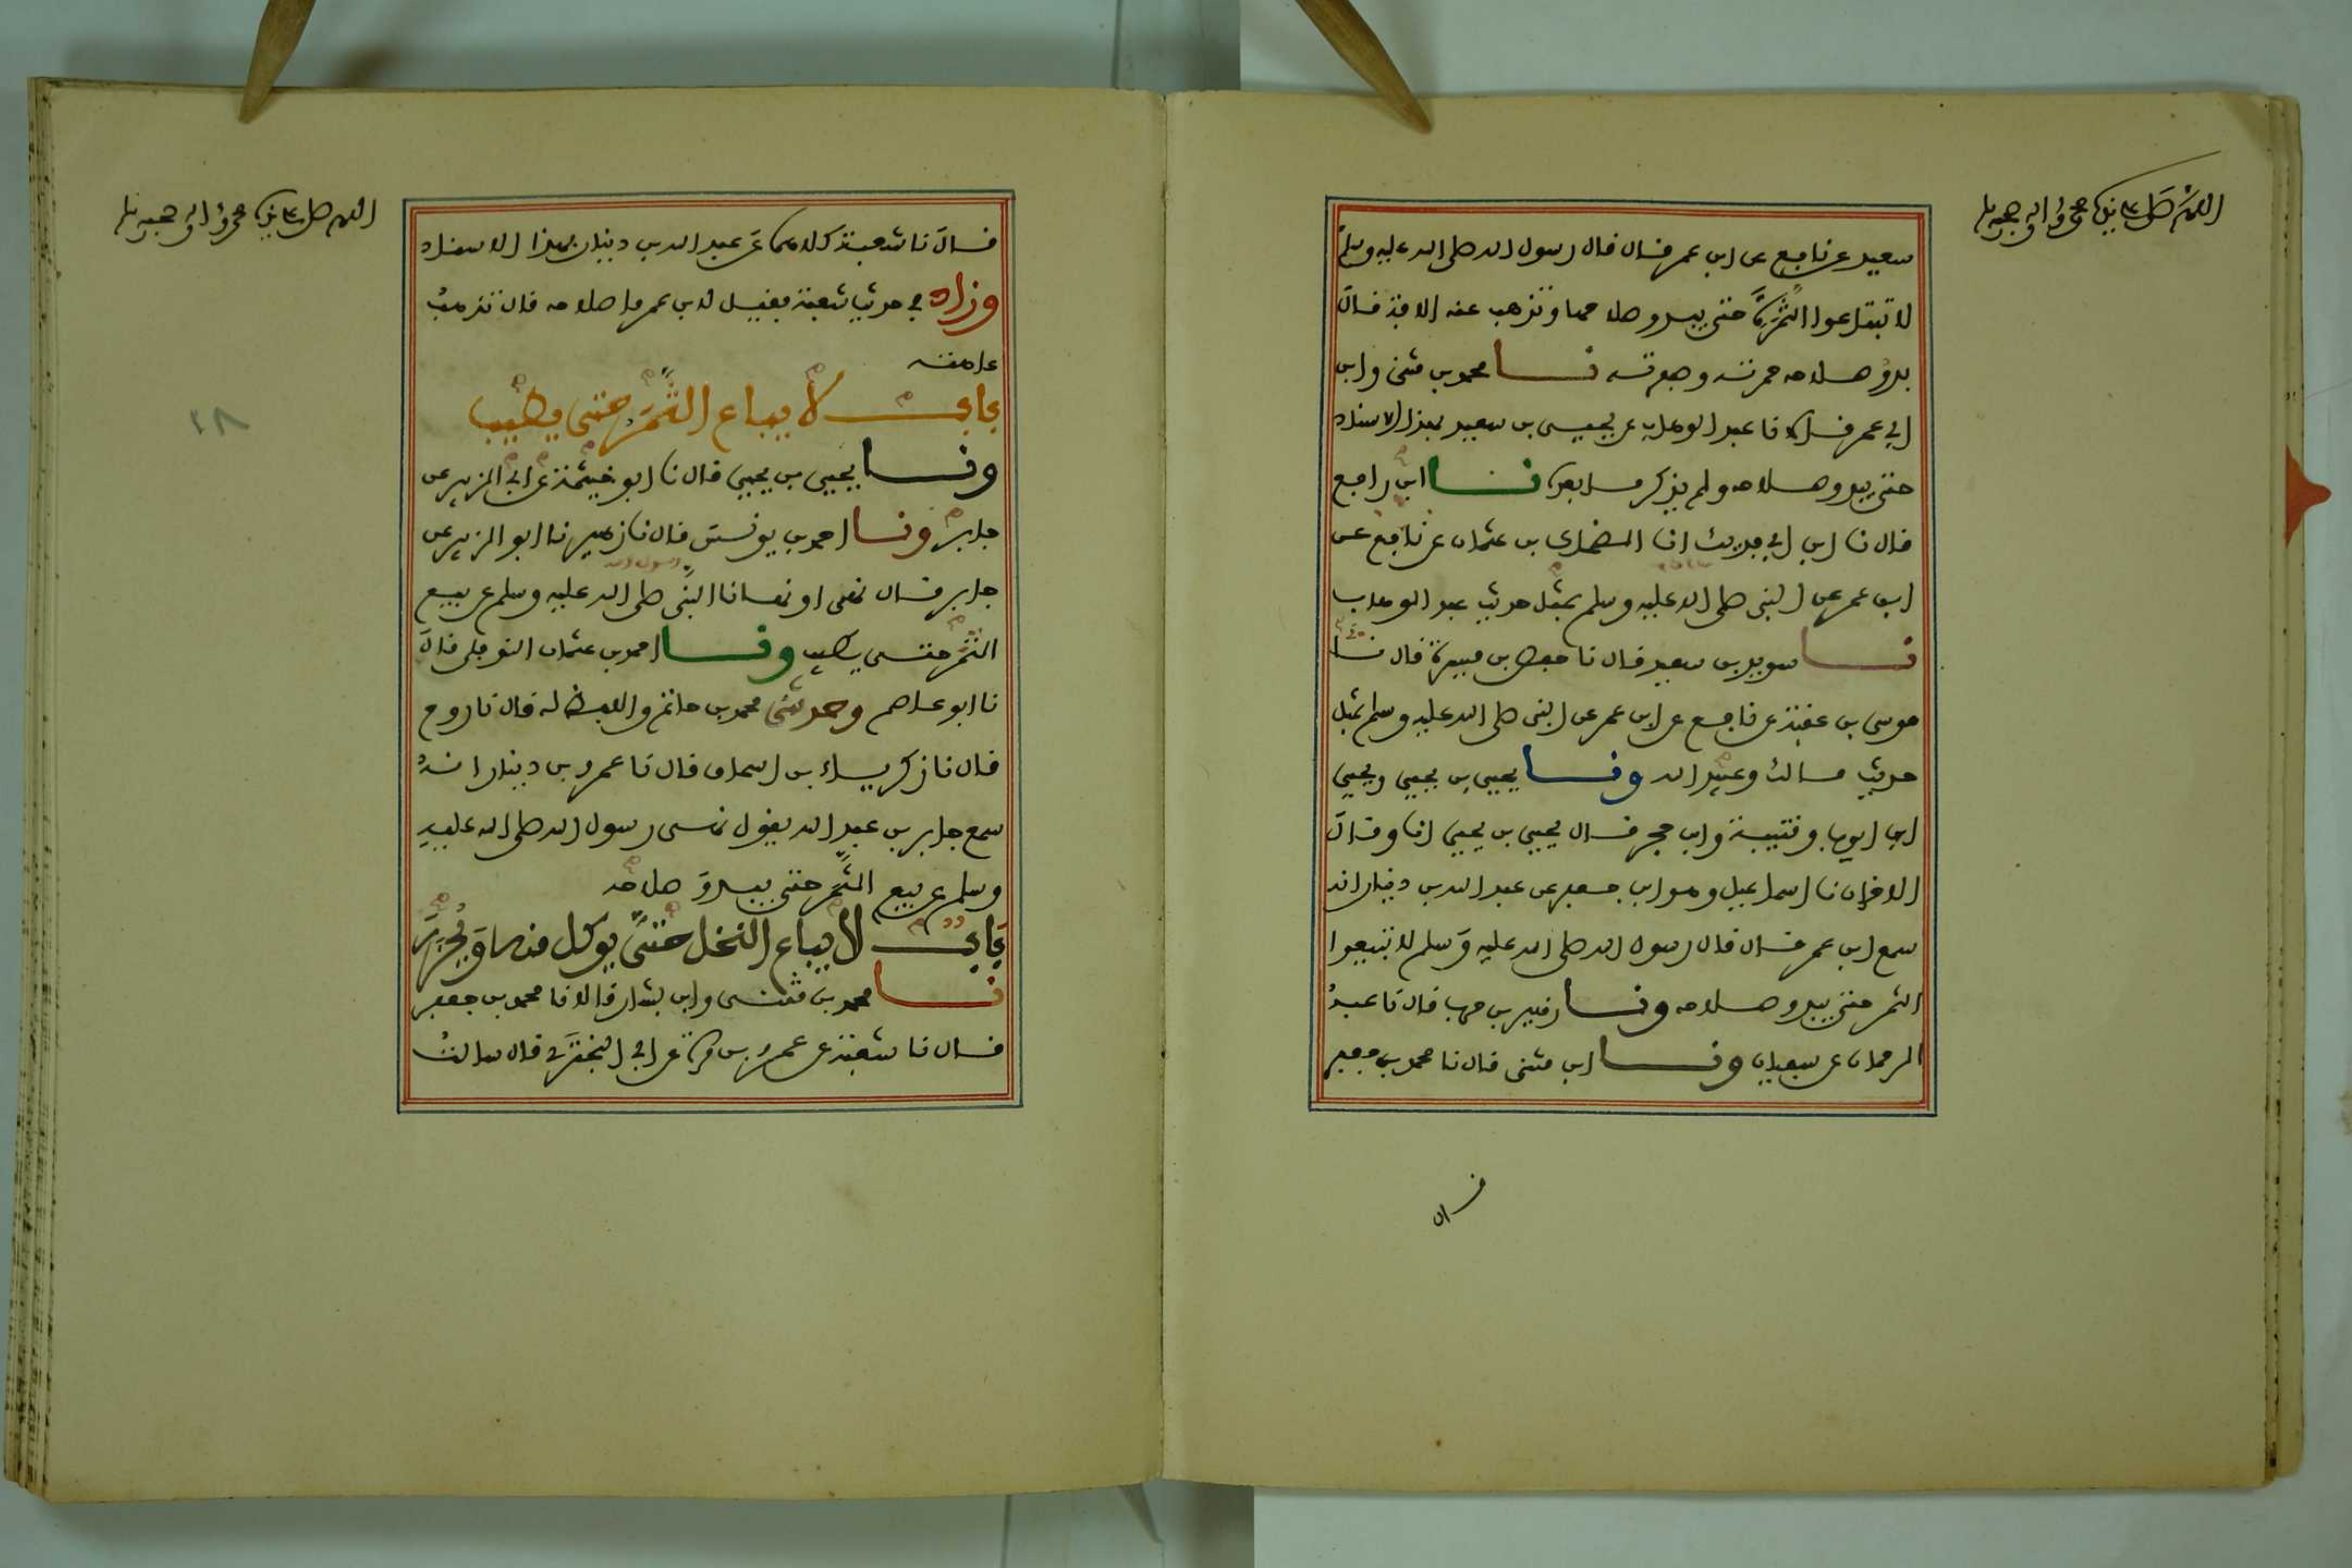 اللهم صل على نبيك محمد واله وصحبه
سعيد عن نافع عن ابن عمر قال قال رسول الله صلى الله عليه وسلم
لا تبتاعوا الثمرة حتى يبدو صلاحها وتذهب عنه الافة قال
بدو صلاحه حمرته وصفرته نا محمد بن مثنى وابن
ابي عمر قالا نا عبد الوهاب عن يحيى بن سعيد بهذا الاسناد
حتى يبدو صلاحه ولم يذكر ما بعده نا ابن رافع
قال نا ابن ابي فديك انا الضحاك بن عثمان عن نافع عن
ابن عمر عن النبي صلى الله عليه وسلم بمثل حديث عبد الوهاب
نا سويد بن سعيد قال نا حفص بن ميسرة قال نا
موسى بن عقبة عن نافع عن ابن عمر عن النبي صلى الله عليه وسلم بمثل
حديث مالك وعبيد الله ونا يحيى بن يحيى ويحيى
ابن ايوب وقتيبة وابن حجر قال يحيى بن يحيى انا وقال
الاخران نا اسماعيل وهو ابن جعفر عن عبد الله بن دينار انه
سمع ابن عمر قال قال رسول الله صلى الله عليه وسلم لا تبيعوا
الثمر حتى يبدو صلاحه ونا زهير بن حرب قال نا عبد
الرحمان عن سفيان ونا ابن مثنى قال نا محمد بن جعفر
قال
اللهم صل على نبيك محمد واله وصحبه
قال نا شعبة كلاهما عن عبد الله بن دينار بهذا الاسناد
وزاد في حديث شعبة فقيل لابن عمر ما صلاحه قال تذهب
عاهته
باب لا يباع الثمر حتى يطيب
ونا يحيى بن يحيى قال نا ابو خيثمة عن ابي الزبير عن
جابر ونا احمد بن يونس قال نا زهير نا ابو الزبير عن
رسول الله
جابر قال نهى او نهانا النبي صلى الله عليه وسلم عن بيع
الثمر حتى يطيب ونا احمد بن عثمان النوفلي قال
نا ابو عاصم وحدثني محمد بن حاتم واللفظ له قال نا روح
قال نا زكرياء بن اسحاق قال نا عمرو بن دينار انه
سمع جابر بن عبد الله يقول نهى رسول الله صلى الله عليه
وسلم عن بيع الثمر حتى يبدو صلاحه
باب لا يباع النخل حتى يوكل منها ويحزر
نا محمد بن مثنى وابن بشار قالا نا محمد بن جعفر
قال نا شعبة عن عمرو بن مرة عن ابي البختري قال سالت